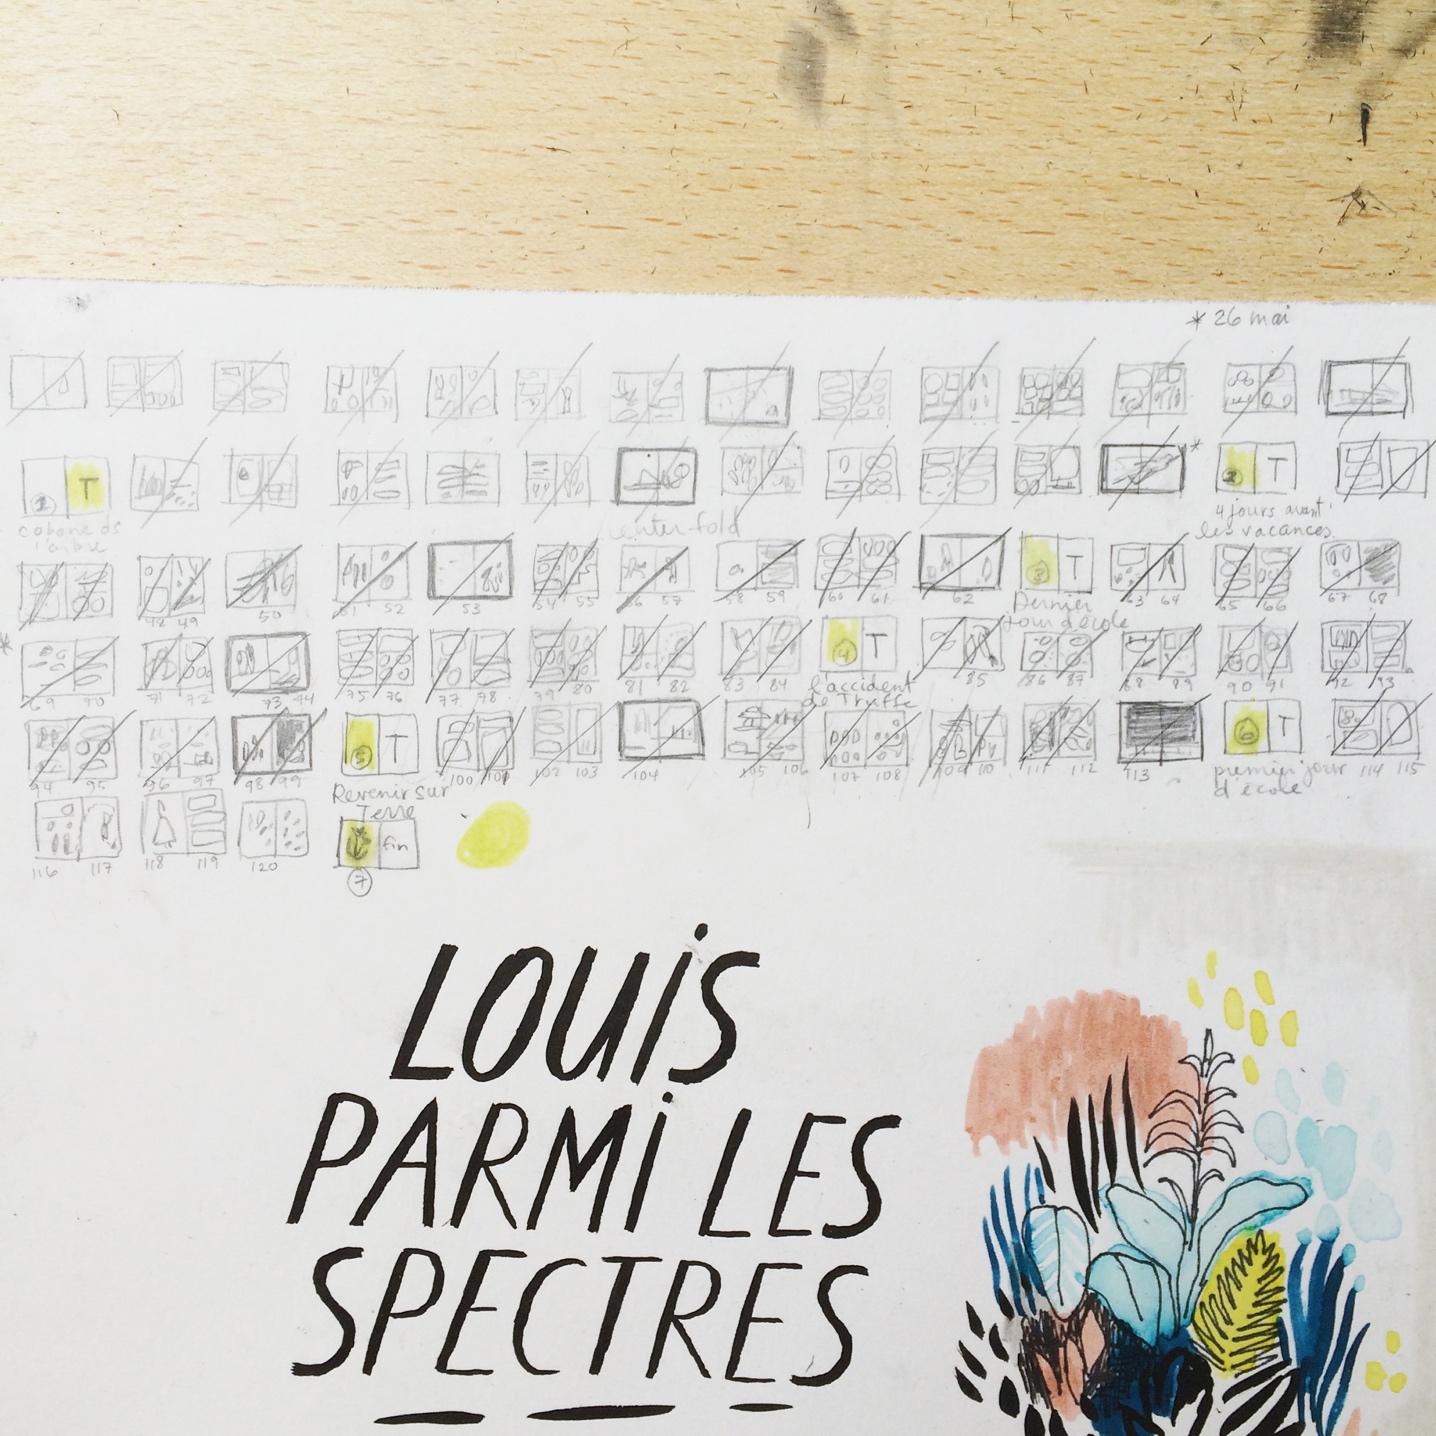 * 26 mai
1 T
2 T
cabane ds
l'arbre
center-fold
4 jours avant
les vacances
3 T
48 49 50 51 52 53 54 55 56 57 58 59 60 61 62 63 64 65 66 67 68
Dernier
jour d'école
4 T
69 70 71 72 73 44 75 76 77 78 79 80 81 82 83 84 85 86 87 88 89 90 91 92 93
l'accident
de Truffe
5 T
6 T
94 95 96 97 98 99 100 101 102 103 104 105 106 107 108 109 110 111 112 113 114 115
Revenir sur
Terre
premier jour
d'école
fin
116 117 118 119 120
7
LOUiS
PARMi LES
SPECTRES